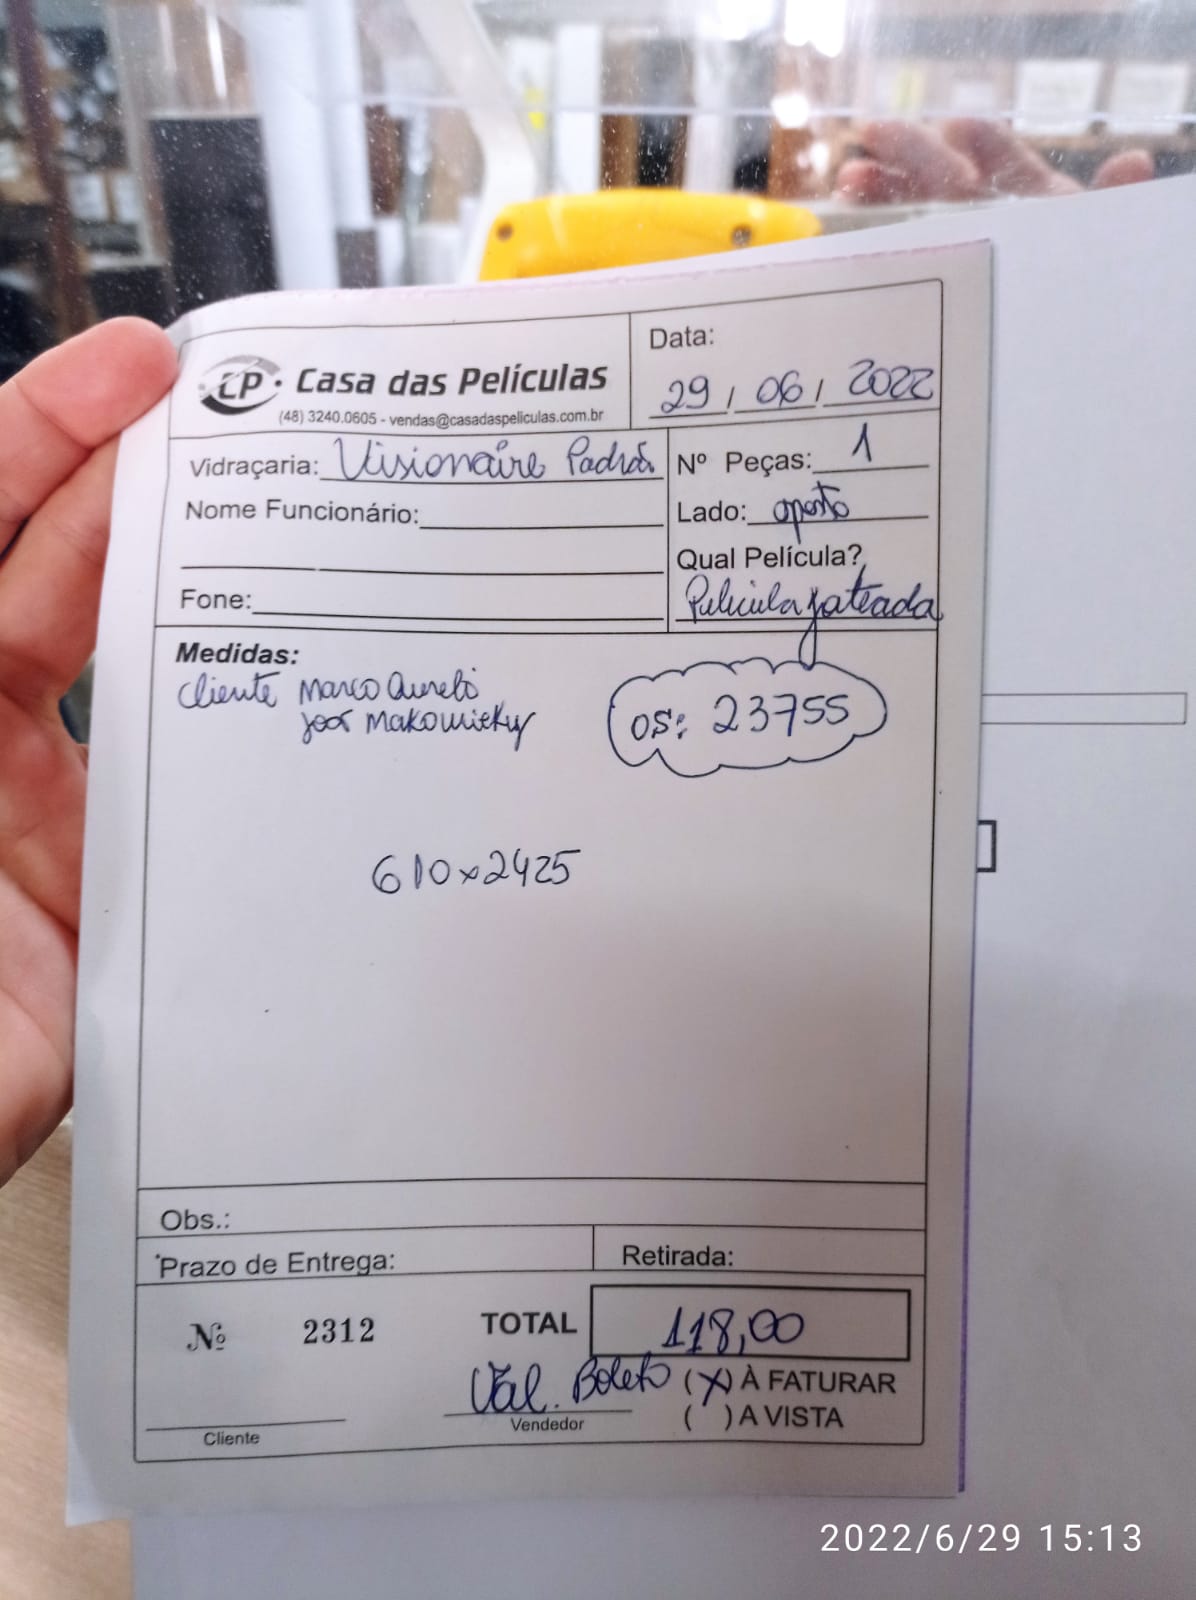 CP. Casa das Películas
(48) 3240.0605 - vendas@casadaspeliculas.com.br
Data:
29 / 06 / 2022
Vidraçaria: Visionaire Padrão
Nº Peças: 1
Nome Funcionário:
Lado: oposto
Qual Película?
Película jateada
Fone:
Medidas:
Cliente Marco Aurelio
José Makowiecky
OS: 23755
610x2425
Obs.:
Prazo de Entrega:
Retirada:
Nº 2312
TOTAL 118,00
Val. Boleto (X) À FATURAR
( ) A VISTA
Cliente
Vendedor
2022/6/29 15:13